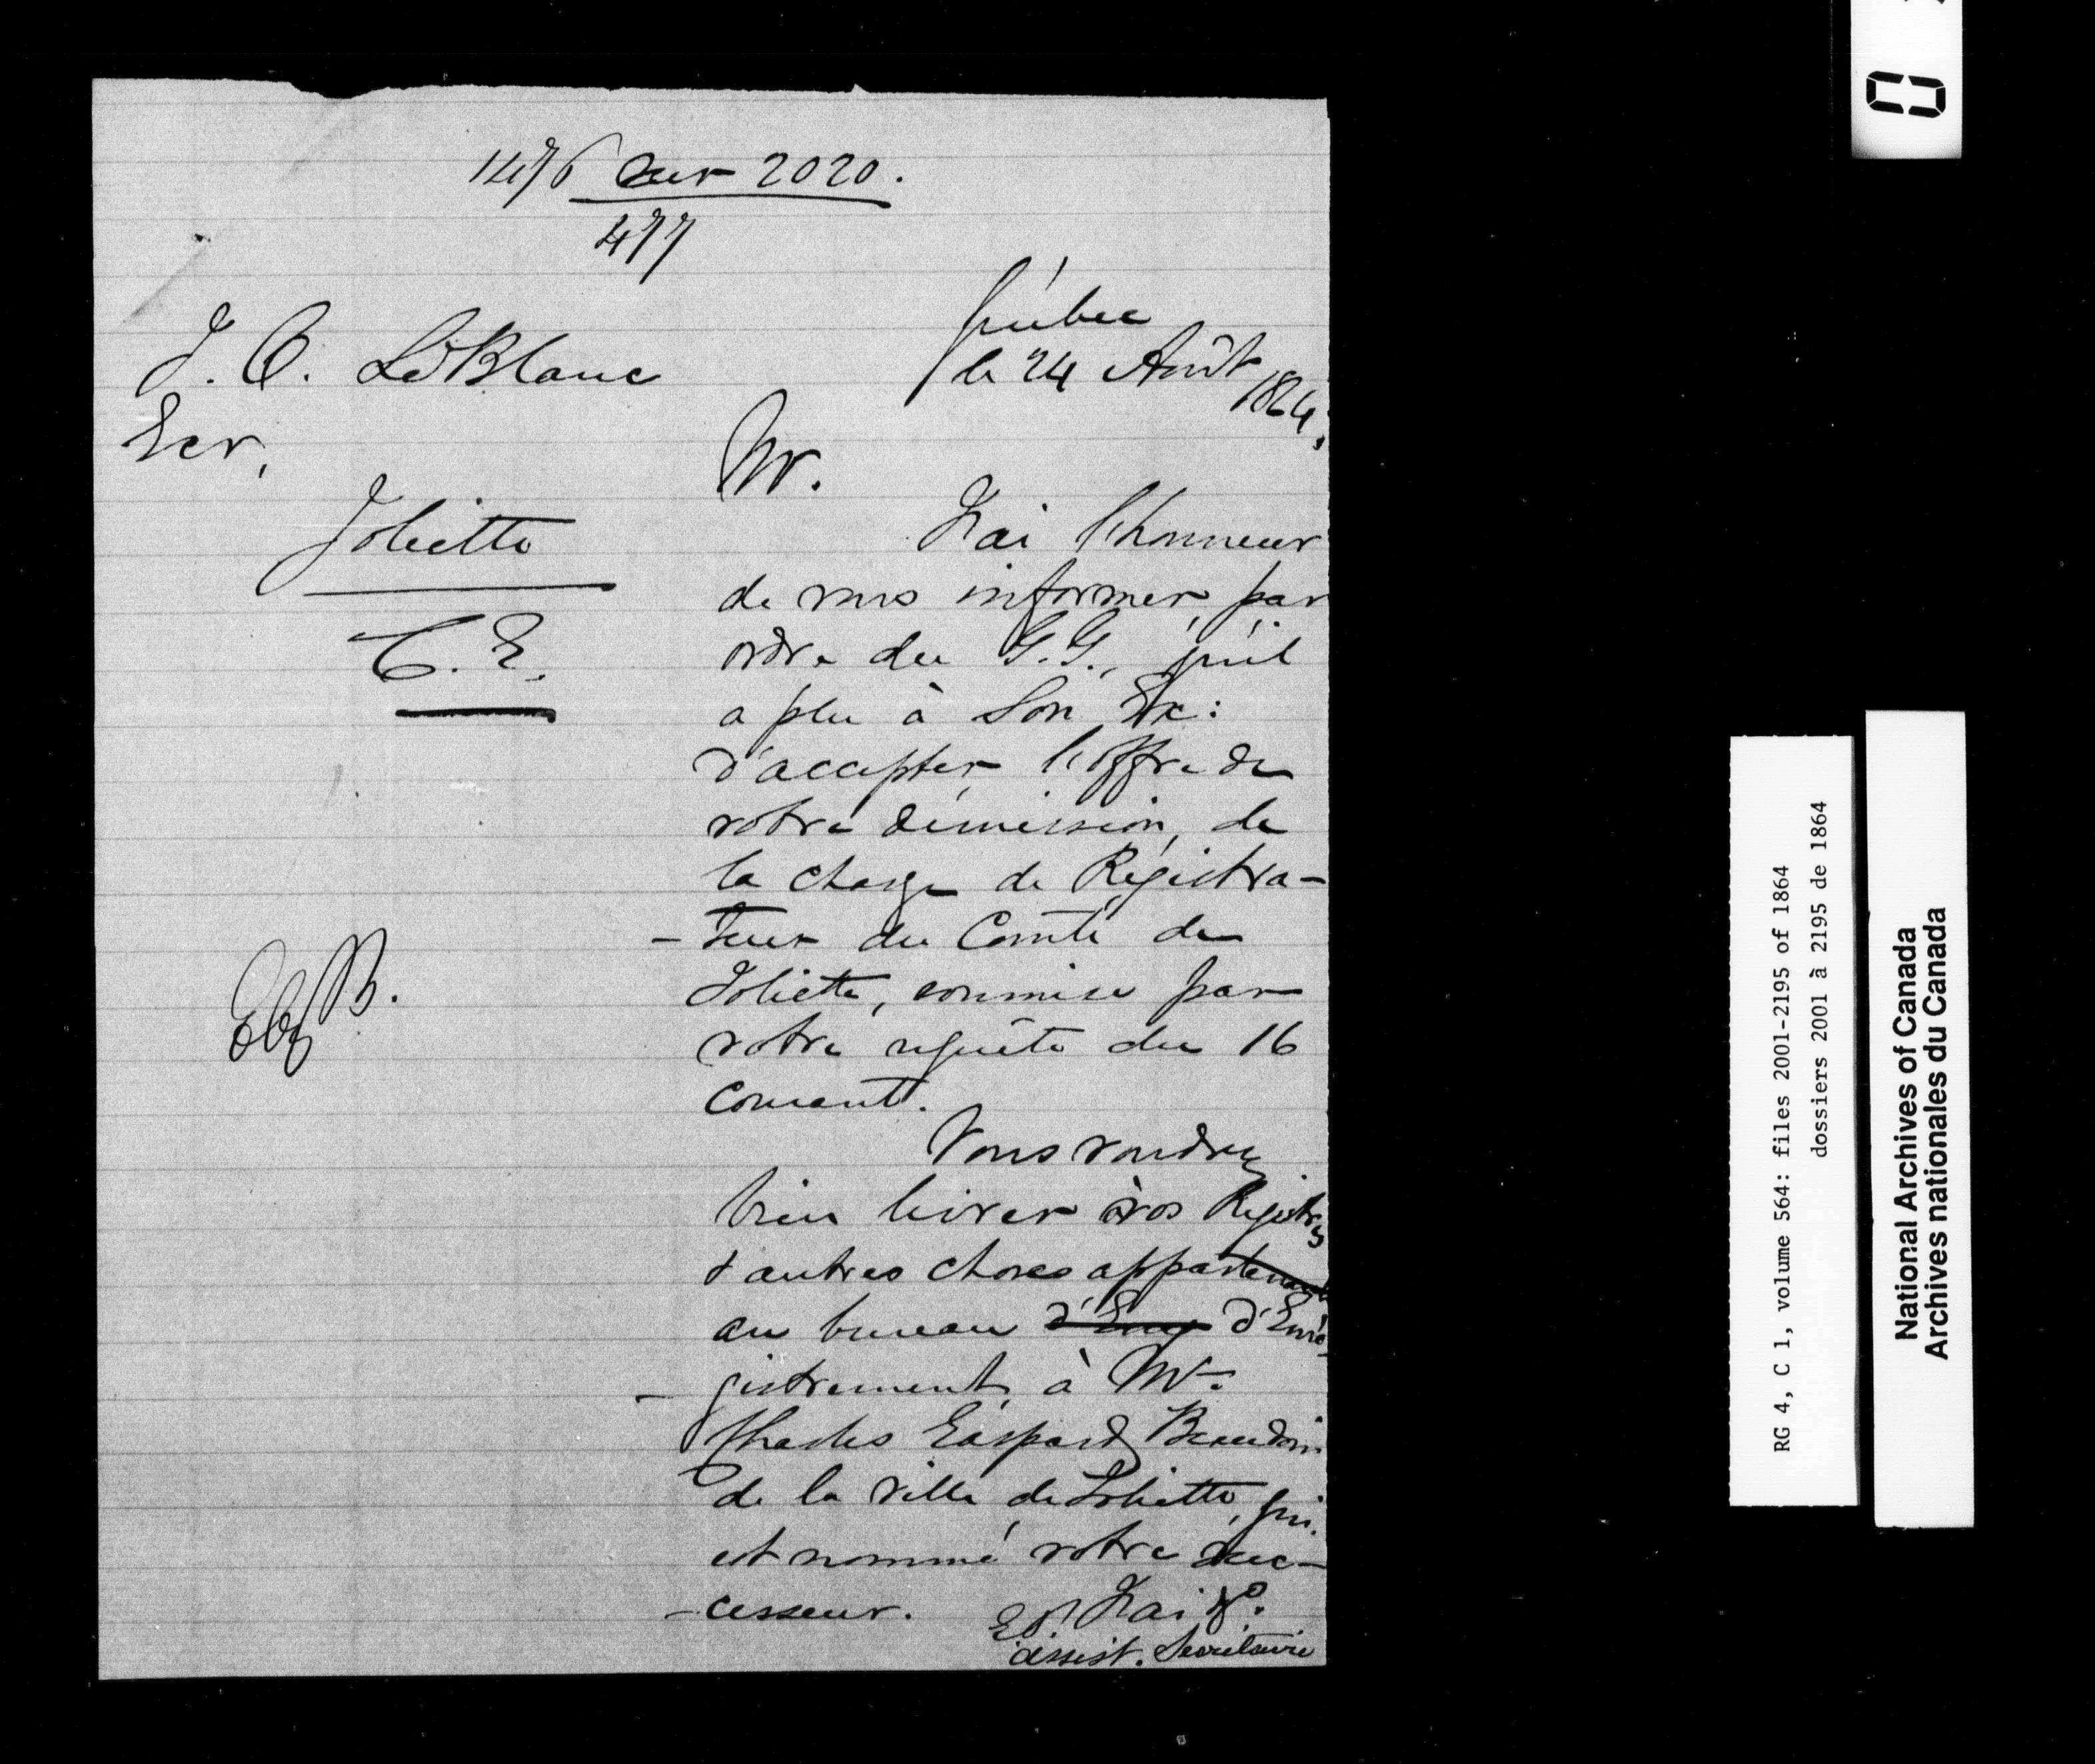 1476 sur 2020.
477
Québec
le 24 Août
1864,
J. O. LeBlanc
Ecr,
Joliette
C. E.
Mr.
J'ai l'honneur
de vous informer, par
ordre du G.G., qu'il
a plu à Son Ex:
d'accepter l'offre de
votre démission, de
la charge de Régistra-
-teur du Comté de
Joliette, soumise par
votre requête du 16
courant.
Vous voudrez
bien livrer vos Régistres
& autres choses appartenant
au bureau d'Enreg d'Enré-
-gistrement, à Mr.
Charles Gaspard Beaudoin
de la ville de Joliette, qui
est nommé votre suc-
-cesseur.
J'ai &c.
Assist. Secrétaire
RG 4, C 1, volume 564: files 2001-2195 of 1864
dossiers 2001 à 2195 de 1864
National Archives of Canada
Archives nationales du Canada